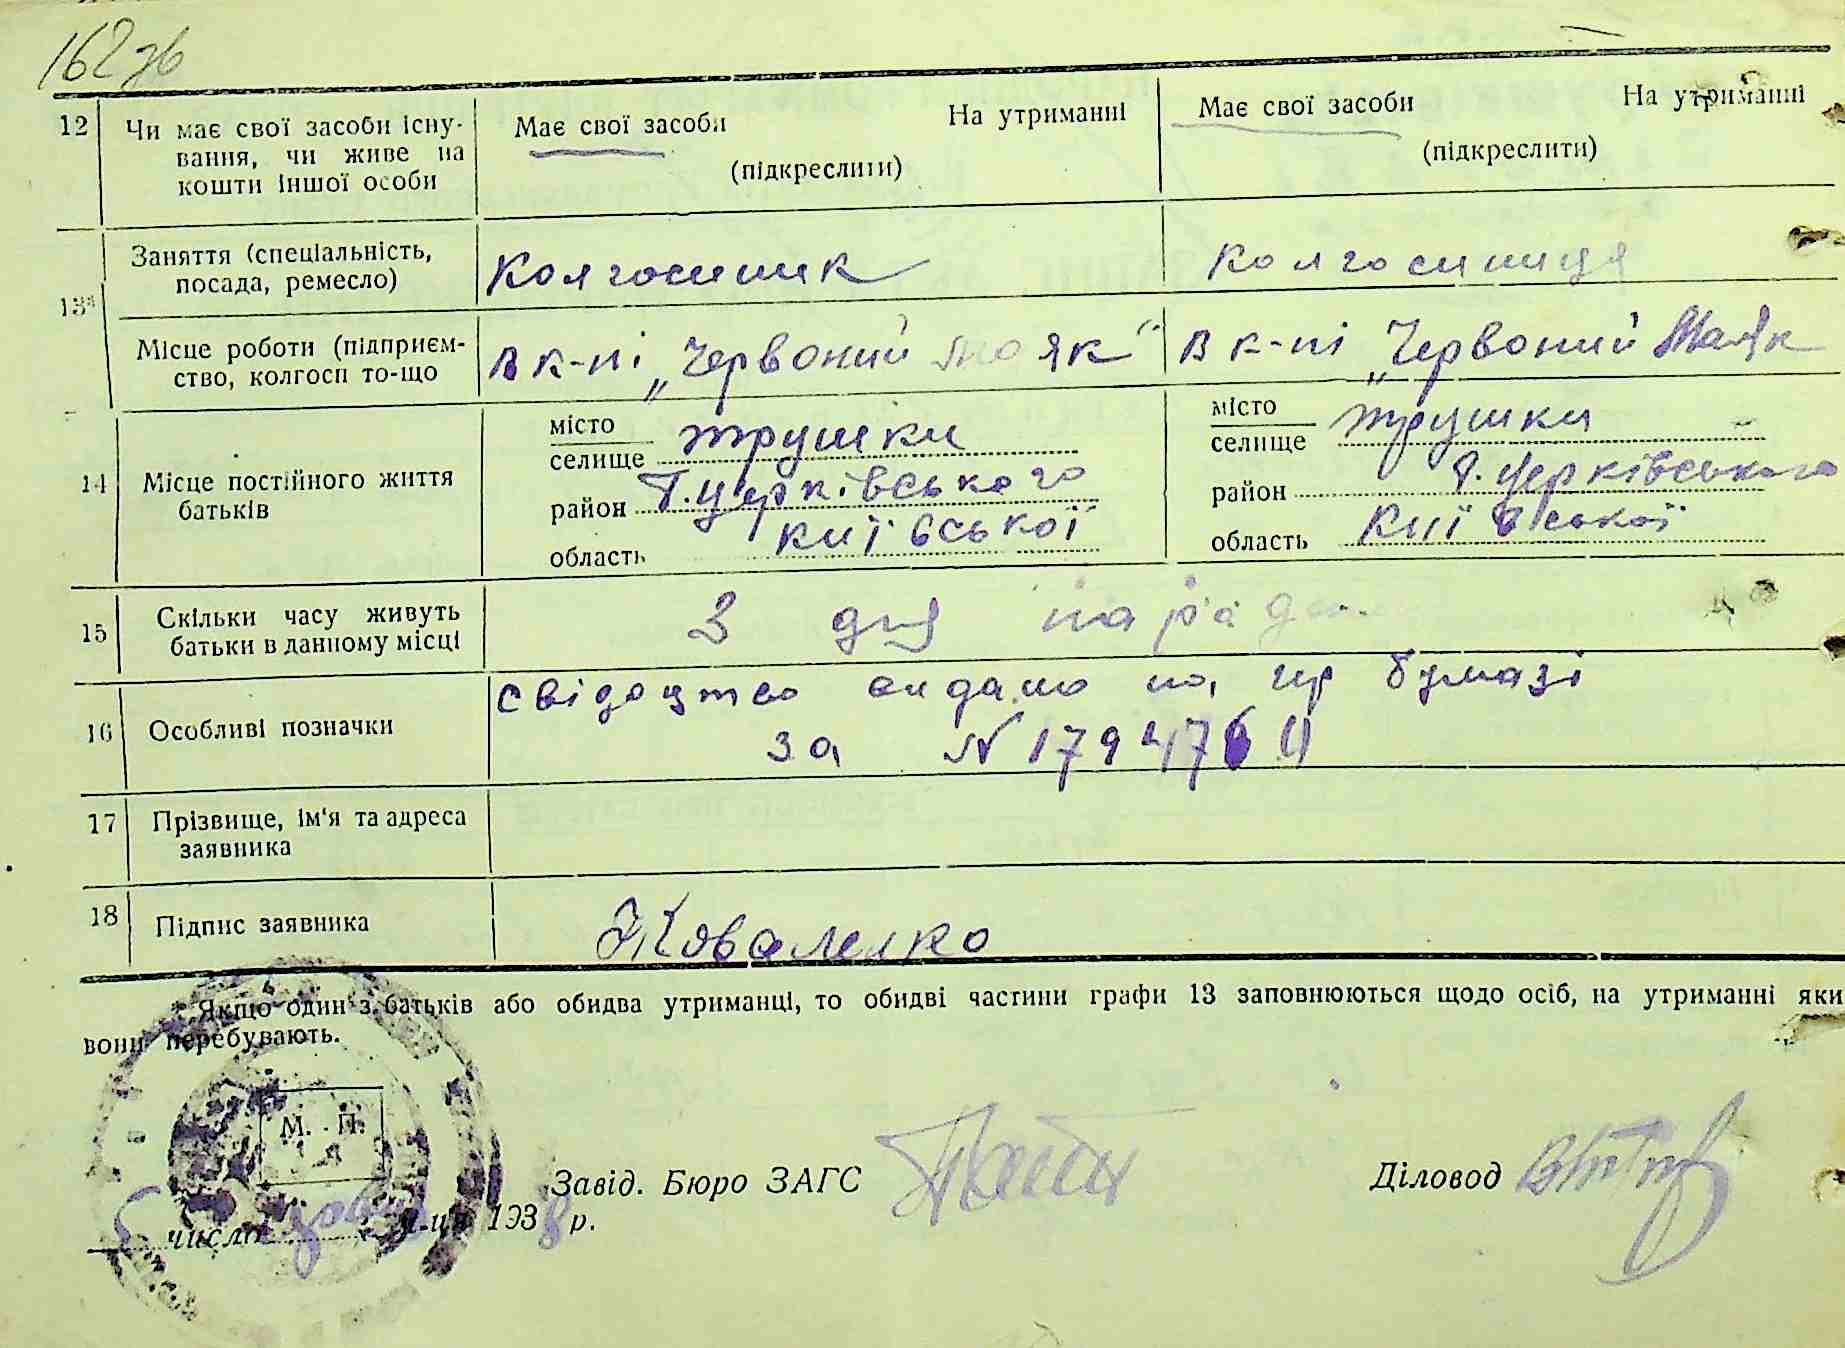 162 зв
12 Чи має свої засоби існу- Має свої засоби На утриманні Має свої засоби На утриманні
вання, чи живе на (підкреслити) (підкреслити)
кошти іншої особи
13 Заняття (спеціальність, Колгоспник Колгоспниця
посада, ремесло)
Місце роботи (підприєм- в к-пі „Червоний Маяк" в к-пі „Червоний Маяк
ство, колгосп то-що
14 Місце постійного життя батьків
місто
селище Трушки
район Б. Церківського
область Київської
місто
селище Трушки
район Б. Церківського
область Київської
15 Скільки часу живуть З дня
батьки в данному місці
16 Особливі позначки Свідоцтво видано на гр бумазі
за N
17 Прізвище, ім'я та адреса
заявника
18 Підпис заявника Коваленко
Якщо один з батьків або обидва утриманці, то обидві частини графи 13 заповнюються щодо осіб, на утриманні яки
вони перебувають.
М. П.
Завід. Бюро ЗАГС Діловод
число м-ця 1938 р.